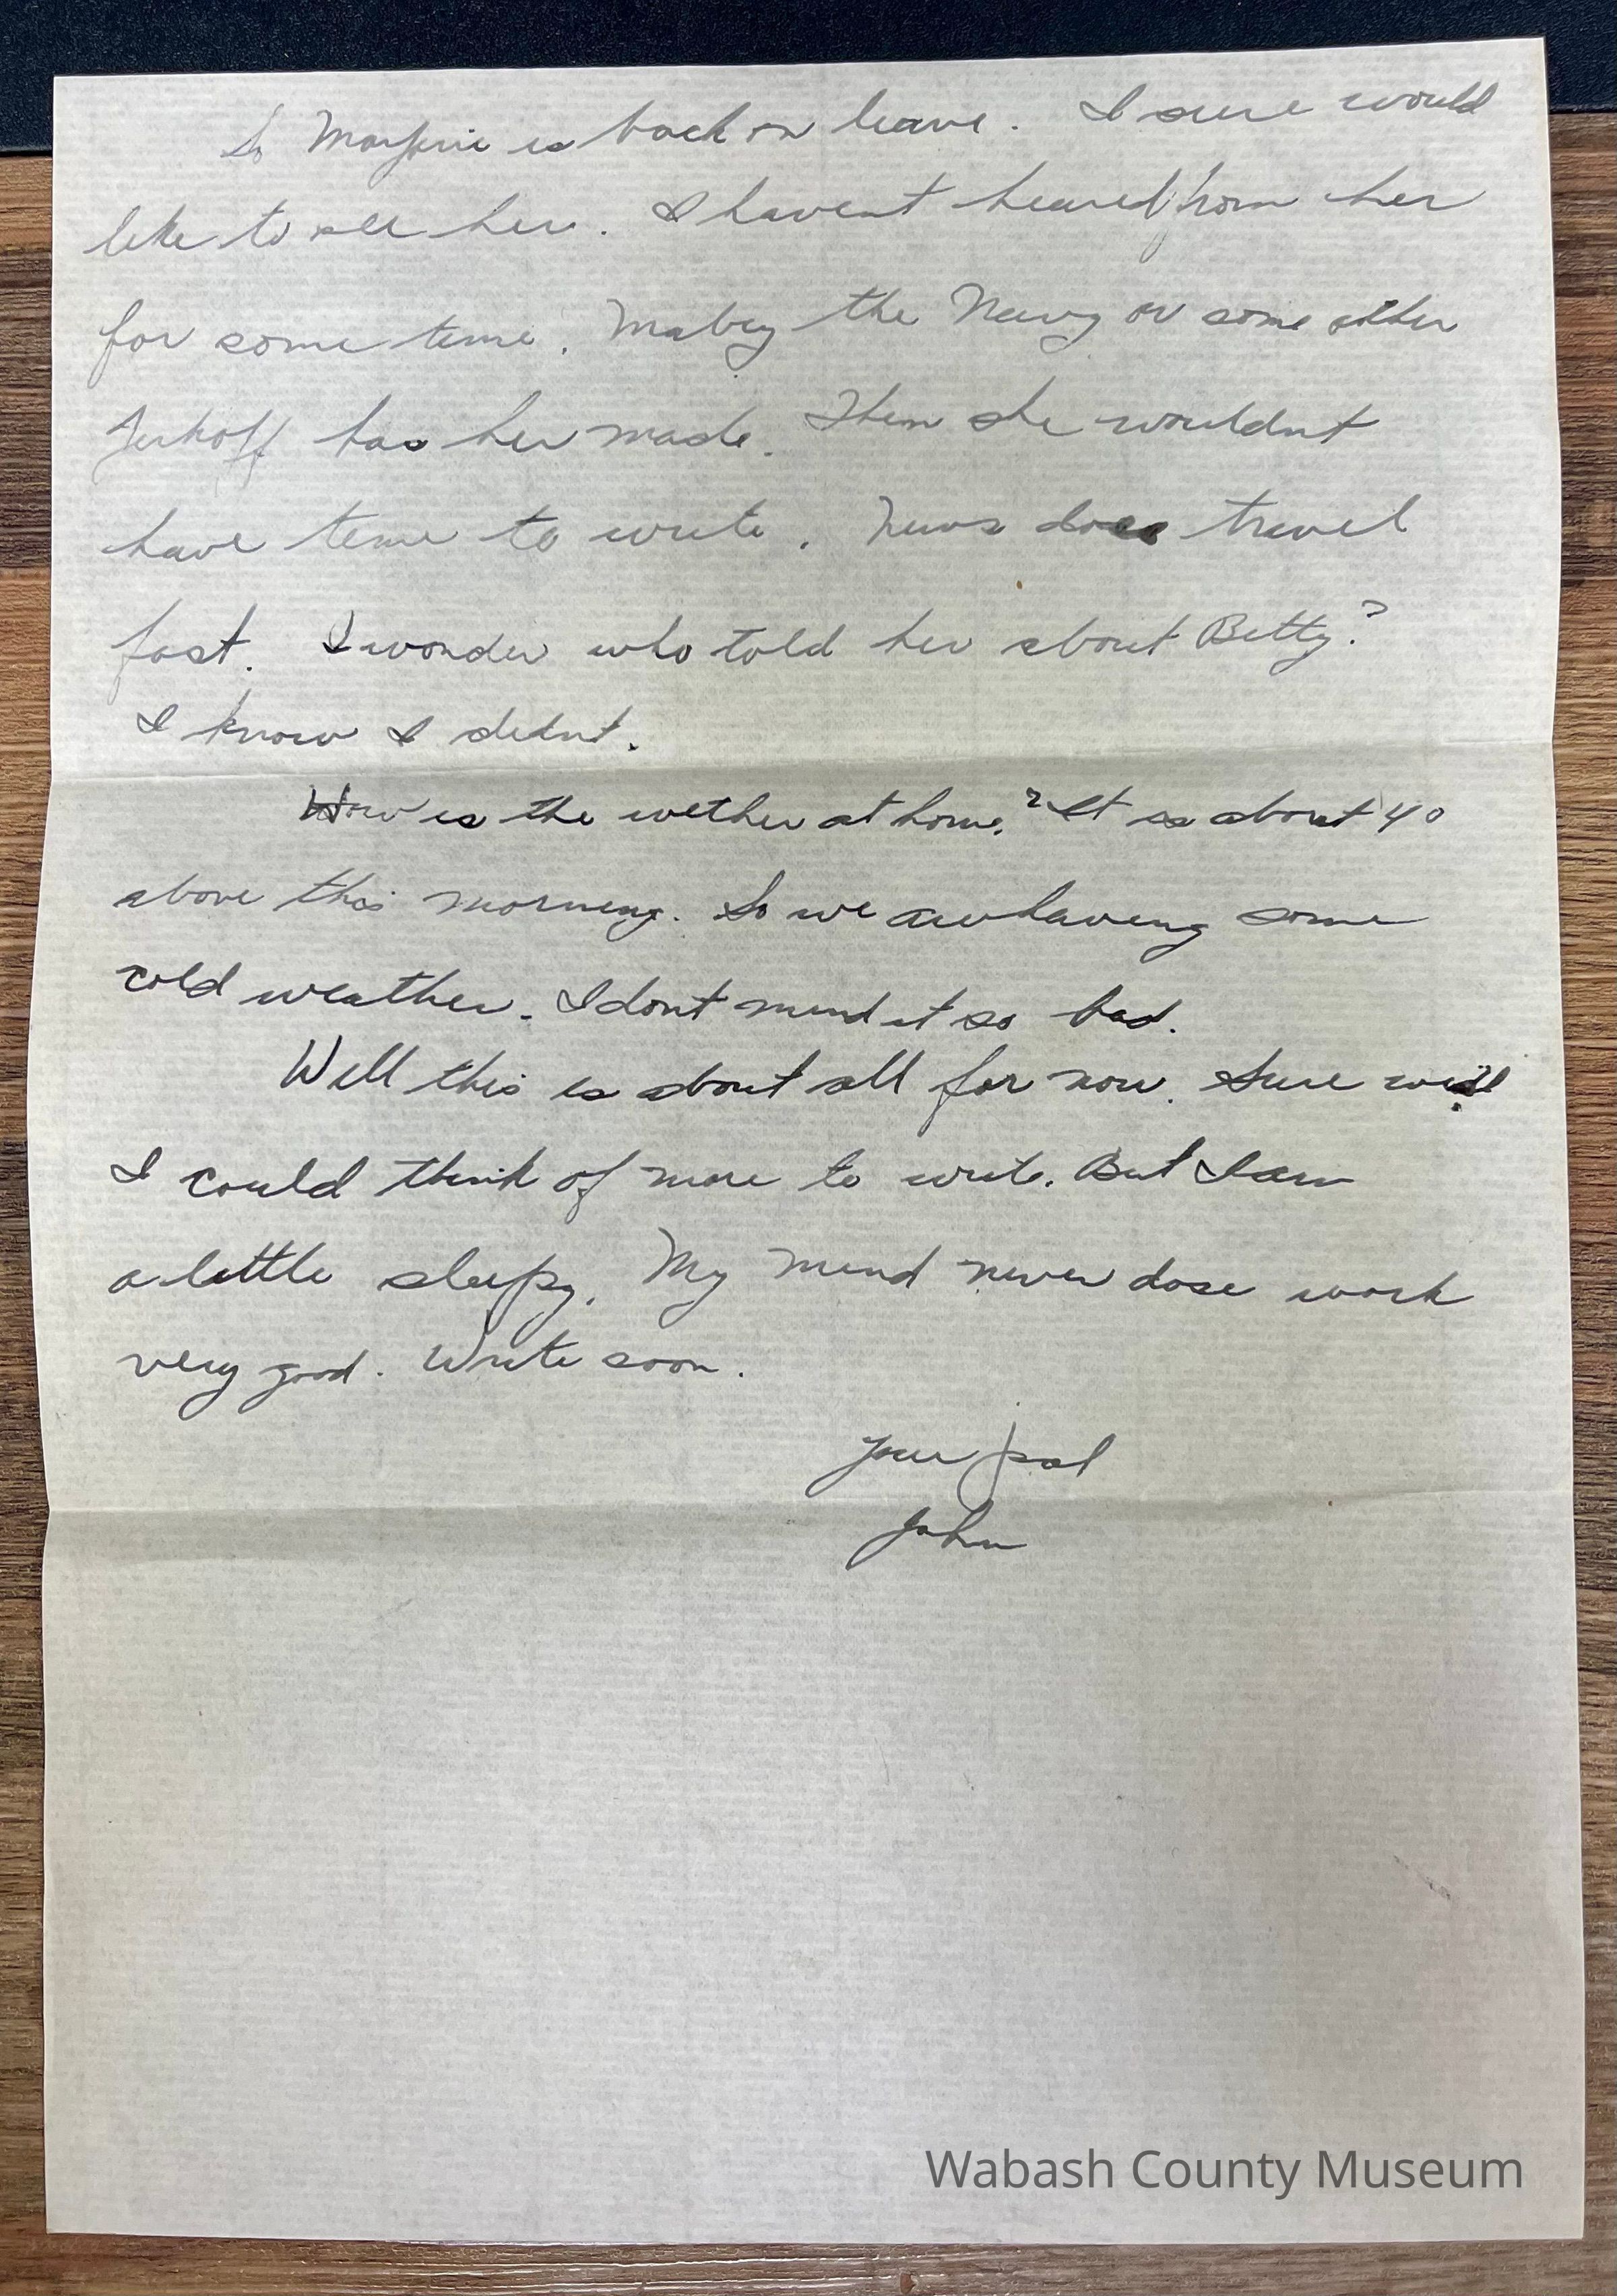 So Marjorie is back on leave. I sure would
like to see her. I havent heared from her
for some time. Mabey the Navy or some other
Jerkoff has her made. Then she wouldnt
have time to write. News does travel
fast. I wonder who told her about Betty?
I know I didnt.
How is the wether at home? It is about 40
above this morning. So we are having some
cold weather. I dont mind it so bad.
Well this is about all for now. Sure wish
I could think of more to write. But I am
a little sleepy. My mind never dose work
very good. Write soon.
Your pal
John
Wabash County Museum